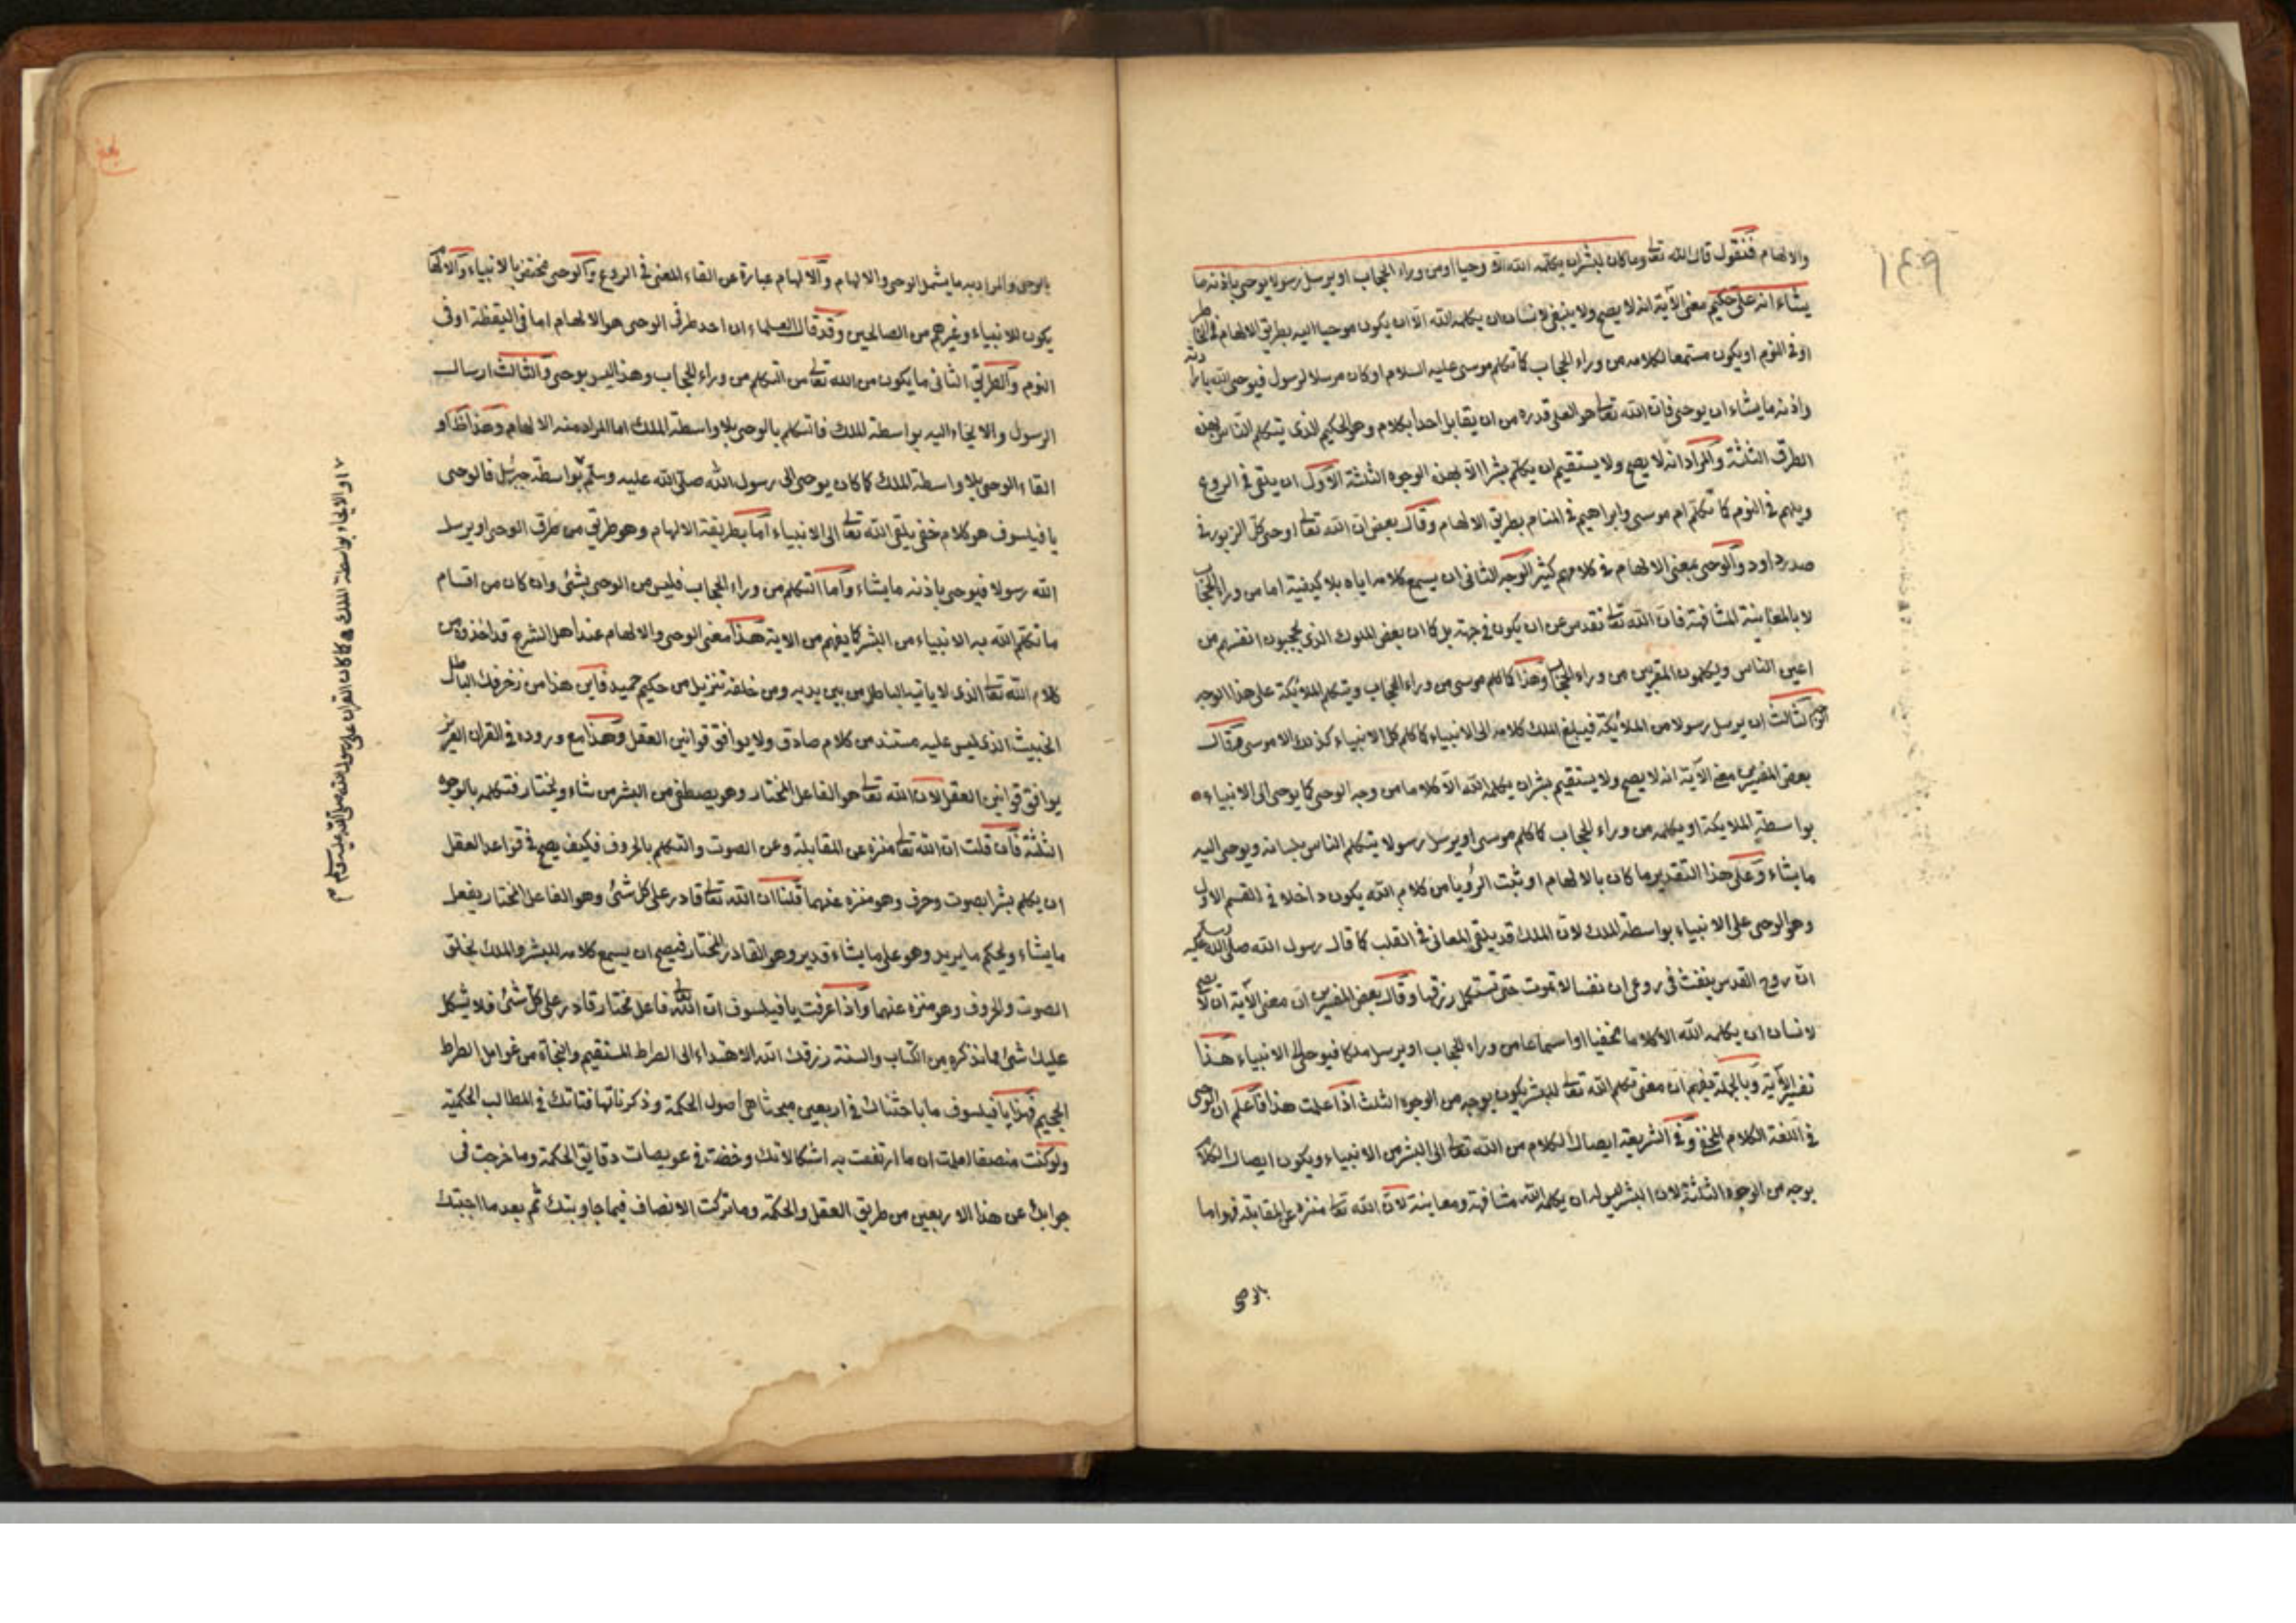 ١٤٩
والالهام فنقول قال الله تعالى وما كان لبشر ان يكلمه الله الا وحيا او من وراء الحجاب او يرسل رسولا يوحى باذنه ما
يشاء انه على حكيم معنى الآية انه لا يصح ولا ينبغى لانسان ان يكلمه الله الا ان يكون موحيا اليه بطريق الالهام فى
او فى النوم او يكون مستمعا لكلامه من وراء الحجاب كما تكلم موسى عليه السلام او كان مرسلا لرسول فيوحى الله
واذنه ما يشاء ان يوحى فان الله تعالى هو العلى قدره من ان يقابل احدا بكلام وهو الحكيم الذى يتكلم الناس بهذه
الطرق الثلثة والمراد انه لا يصح ولا يستقيم ان يكلم بشرا الا بهذه الوجوه الثلثة الاول ان يلقى فى الروع
ويلهم فى النوم كما تكلم ام موسى وابراهيم فى المنام بطريق الالهام وقال بعض ان الله تعالى اوحى كل الزبور فى
صدر داود والوحى بمعنى الالهام فى كلامهم كثير الوجه الثانى ان يسمع كلامه اياه بلا كيفية اما من وراء الحجاب
لا بالمعاينة المشافهة فان الله تعالى تقدس عن ان يكون فى جهة بل كما ان بعض الملوك الذى يحجبون انفسهم من
اعين الناس ويكلمون المقربين من وراء الحجاب وهذا كما كلم موسى من وراء الحجاب ويتكلم الملائكة على هذا الوجه
الوجه الثالث ان يرسل رسولا من الملائكة فيبلغ الملك كلامه الى الانبياء كما كلم كل الانبياء كذلك الا موسى وقال
بعض المفسرين معنى الآية انه لا يصح ولا يستقيم بشر ان يكلمه الله الا كلاما من وجه الوحى كما يوحى الى الانبياء
بواسطة الملايكة او يكلمه من وراء الحجاب كما كلم موسى او يرسل رسولا يتكلم الناس بلسانه ويوحى اليه
ما يشاء وعلى هذا التقدير ما كان بالالهام او ثبت الرؤيا من كلام الله يكون داخلا فى القسم الاول
وهو الوحى على الانبياء بواسطة الملك لان الملك قد يلقى المعانى فى القلب كما قال رسول الله صلى الله عليه وسلم
ان روح القدس ينفث فى روعى ان نفسا لا تموت حتى تستكمل رزقها وقال بعض المفسرين ان معنى الآية ان لا يصح
لانسان ان يكلمه الله الا كلاما مخفيا او اسماعا من وراء الحجاب او يرسل ملكا فيوحى الى الانبياء هذا
تفسير الآية وبالجملة يفهم ان معنى تكلم الله تعالى للبشر يكون بوجه من الوجوه الثلث اذا علمت هذا فاعلم ان الوحى
فى اللغة الكلام المخفى وفى الشريعة ايصال الكلام من الله تعالى الى البشر من الانبياء ويكون ايصال الكلام
بوجه من الوجوه الثلثة لان البشر ليس له ان يكلمه الله مشافهة ومعاينة لان الله تعالى منزه عن المقابلة فهو اما
بالوحى
بالوحى والمراد به ما يشمل الوحى والالهام والالهام عبارة عن القاء المعنى فى الروع والوحى مختص بالانبياء والالهام
يكون للانبياء وغيرهم من الصالحين وقد قال العلماء ان احد طرفى الوحى هو الالهام اما فى اليقظة او فى
النوم والطريق الثانى ما يكون من الله تعالى من التكلم من وراء الحجاب وهذا ليس بوحى والثالث ارسال
الرسول والايحاء اليه بواسطة الملك فالتكلم بالوحى بلا واسطة الملك اما المراد منه الالهام وهذا ظ او
القاء الوحى بلا واسطة الملك كما كان يوحى الى رسول الله صلى الله عليه وسلم بواسطة جبرئيل فالوحى
يا فيلسوف هو كلام خفى يلقى الله تعالى الى الانبياء اما بطريقة الالهام وهو طريق من طرق الوحى او يرسل
الله رسولا فيوحى باذنه ما يشاء واما التكلم من وراء الحجاب فليس من الوحى بشئ وان كان من اقسام
ما تكلم الله به الانبياء من البشر كما يفهم من الاية هذا معنى الوحى والالهام عند اهل الشرع قد اخذوه من
كلام الله تعالى الذى لا ياتيه الباطل من بين يديه ومن خلفه تنزيل من حكيم حميد فاين هذا من زخرفك الباطل
الخبيث الذى ليس عليه مستند من كلام صادق ولا يوافق قوانين العقل وهذا مع وروده فى القران العزيز
يوافق قوانين العقل لان الله تعالى هو الفاعل المختار وهو يصطفى من البشر من شاء ويختار فتكلمه بالوجوه
الثلثة فان قلت ان الله تعالى منزه عن المقابلة وعن الصوت والتكلم بالحروف فكيف يصح فى قواعد العقل
ان يكلم بشرا بصوت وحرف وهو منزه عنهما قلنا ان الله تعالى قادر على كل شئ وهو الفاعل المختار يفعل
ما يشاء ويحكم ما يريد وهو على ما يشاء قدير وهو القادر المختار فيصح ان يسمع كلامه للبشر والملك بخلق
الصوت والحروف وهو منزه عنهما واذا عرفت يا فيلسوف ان الله تعالى فاعل مختار قادر على كل شئ فلا يشكل
عليك شئ مما نذكره من الكتاب والسنة رزقك الله الاهتداء الى الصراط المستقيم والنجاة من غوامل الصراط
الجحيم فهذا يا فيلسوف ما باحثناك فى اربعين مبحثا هى اصول الحكمة وذكرناتها فتاتك فى المطالب الحكمية
ولو كنت منصفا لعلمت ان ما ارتفعت به اشكالاتك وخضت فى عويصات دقايق الحكمة وما خرجت فى
جوابك عن هذا الاربعين من طريق العقل والحكمة وما تركت الانصاف فيما جاوبتك ثم بعد ما اجبتك
او الايحاء بواسطة الملك كما كان القران على رسول الله صلى الله عليه وسلم